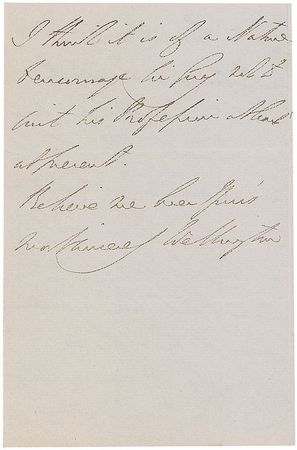 I think it is of a Nature
to encourage Guy not to
quit his Profession at least
at present.
Believe me ever Yours
most sincerely Wellington